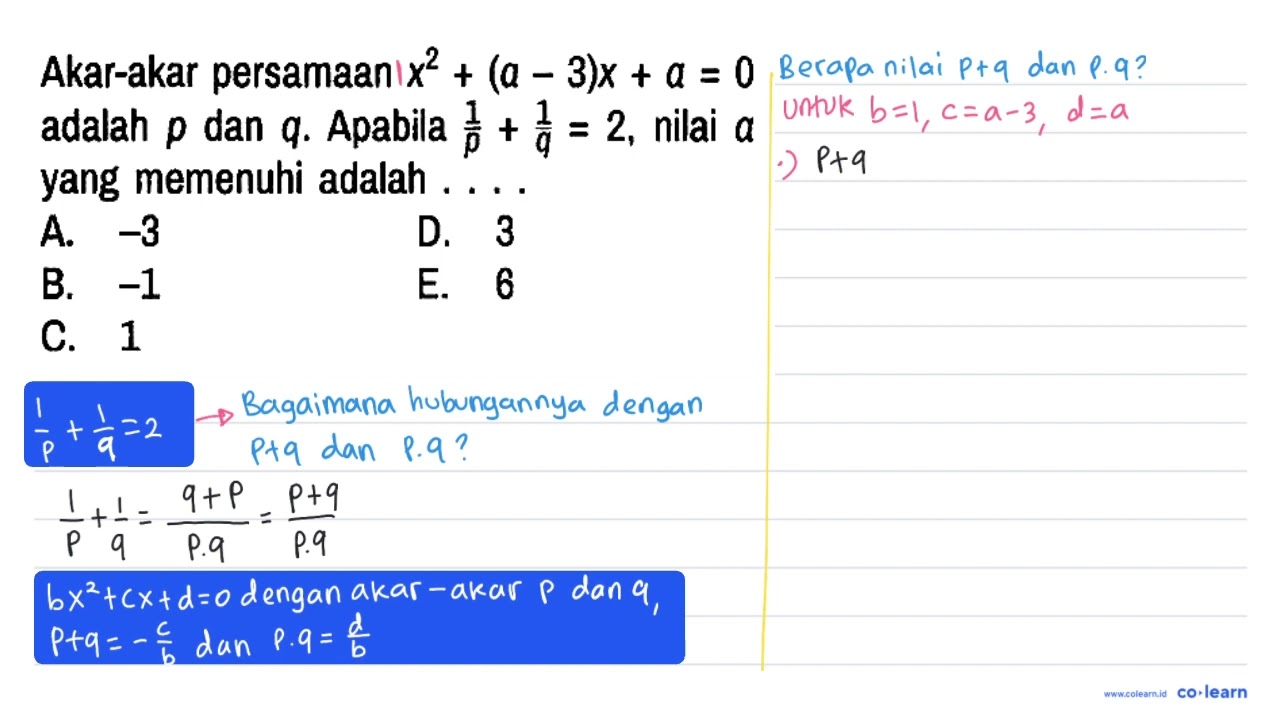 Akar-akar persamaan 1x² + (a – 3)x + a = 0
adalah p dan q. Apabila 1/p + 1/q = 2, nilai a
yang memenuhi adalah . . . .
A. –3
B. –1
C. 1
D. 3
E. 6
1/p + 1/q = 2 → Bagaimana hubungannya dengan
p+q dan p.q?
1/p + 1/q = (q+p)/(p.q) = (p+q)/(p.q)
bx²+cx+d=0 dengan akar-akar p dan q,
p+q = -c/b dan p.q = d/b
Berapa nilai p+q dan p.q?
untuk b=1, c=a-3, d=a
•) p+q
www.colearn.id co·learn